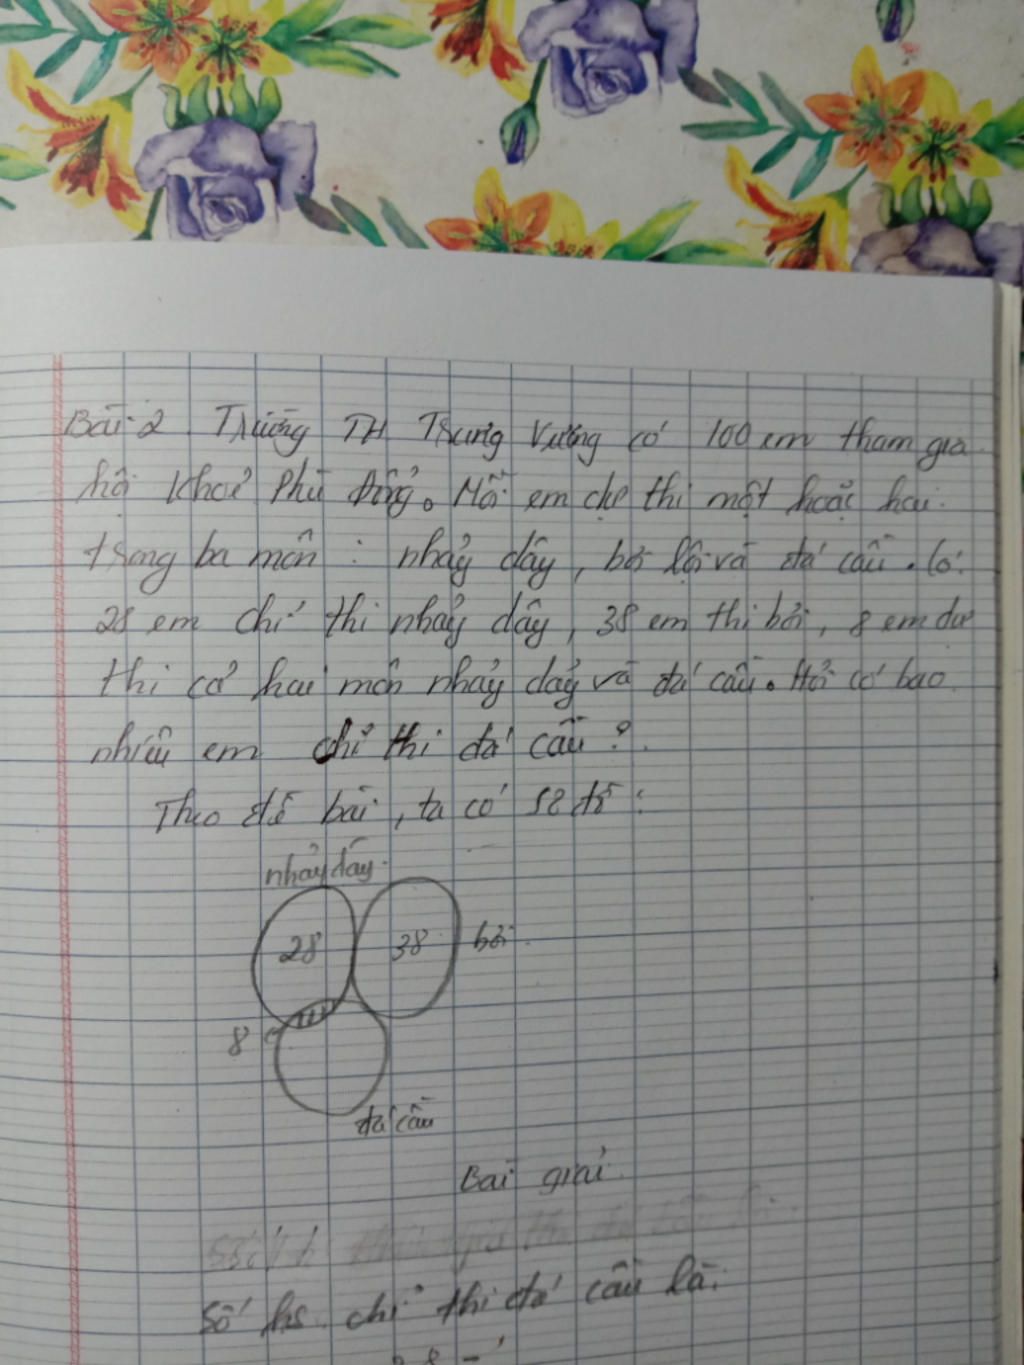 Bài 2. Trường TH Trưng Vương có 100 em tham gia
hội khoẻ Phù Đổng. Mỗi em dự thi một hoặc hai
trong ba môn : nhảy dây, bơi lội và đá cầu. Có
28 em chỉ thi nhảy dây, 38 em thi bơi, 8 em dự
thi cả hai môn nhảy dây và đá cầu. Hỏi có bao
nhiêu em chỉ thi đá cầu ?
Theo đề bài, ta có sơ đồ :
nhảy dây
28
38
bơi
8
đá cầu
Bài giải
Số hs chỉ thi đá cầu là: